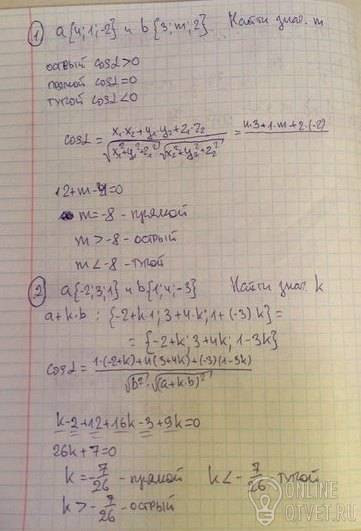 ① a{4;1;-2} и b{3;m;2}. Найти знач. m
острый cosα>0
прямой cosα=0
тупой cosα<0
cosα = (x₁·x₂+y₁·y₂+z₁·z₂)/(√(x₁²+y₁²+z₁²)·√(x₂²+y₂²+z₂²)) = (4·3+1·m+2·(-2))/
12+m-4=0
m=-8 - прямой
m>-8 - острый
m<-8 - тупой
② a{-2;3;1} и b{1;4;-3} Найти знач. k
a+k·b : {-2+k·1; 3+4·k; 1+(-3)k} =
= {-2+k; 3+4k; 1-3k}
cosα = (1·(-2+k)+4(3+4k)+(-3)(1-3k))/(√b²·√(a+k·b)²)
k-2+12+16k-3+9k=0
26k+7=0
k=-7/26 - прямой k<-7/26 тупой
k>-7/26 - острый
ONLINE
OTVET.RU